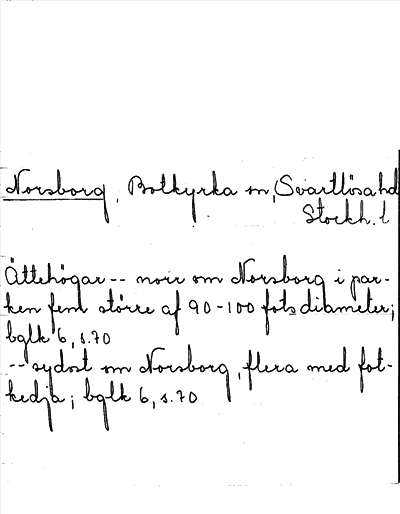 Norsborg, Botkyrka sn, Svartlösa hd
Stockh. l
Ättehögar -- norr om Norsborg i par-
ken fem större af 90-100 fots diameter;
bglk 6, s.70
-- sydost om Norsborg, flera med fot-
kedja; bglk 6, s.70